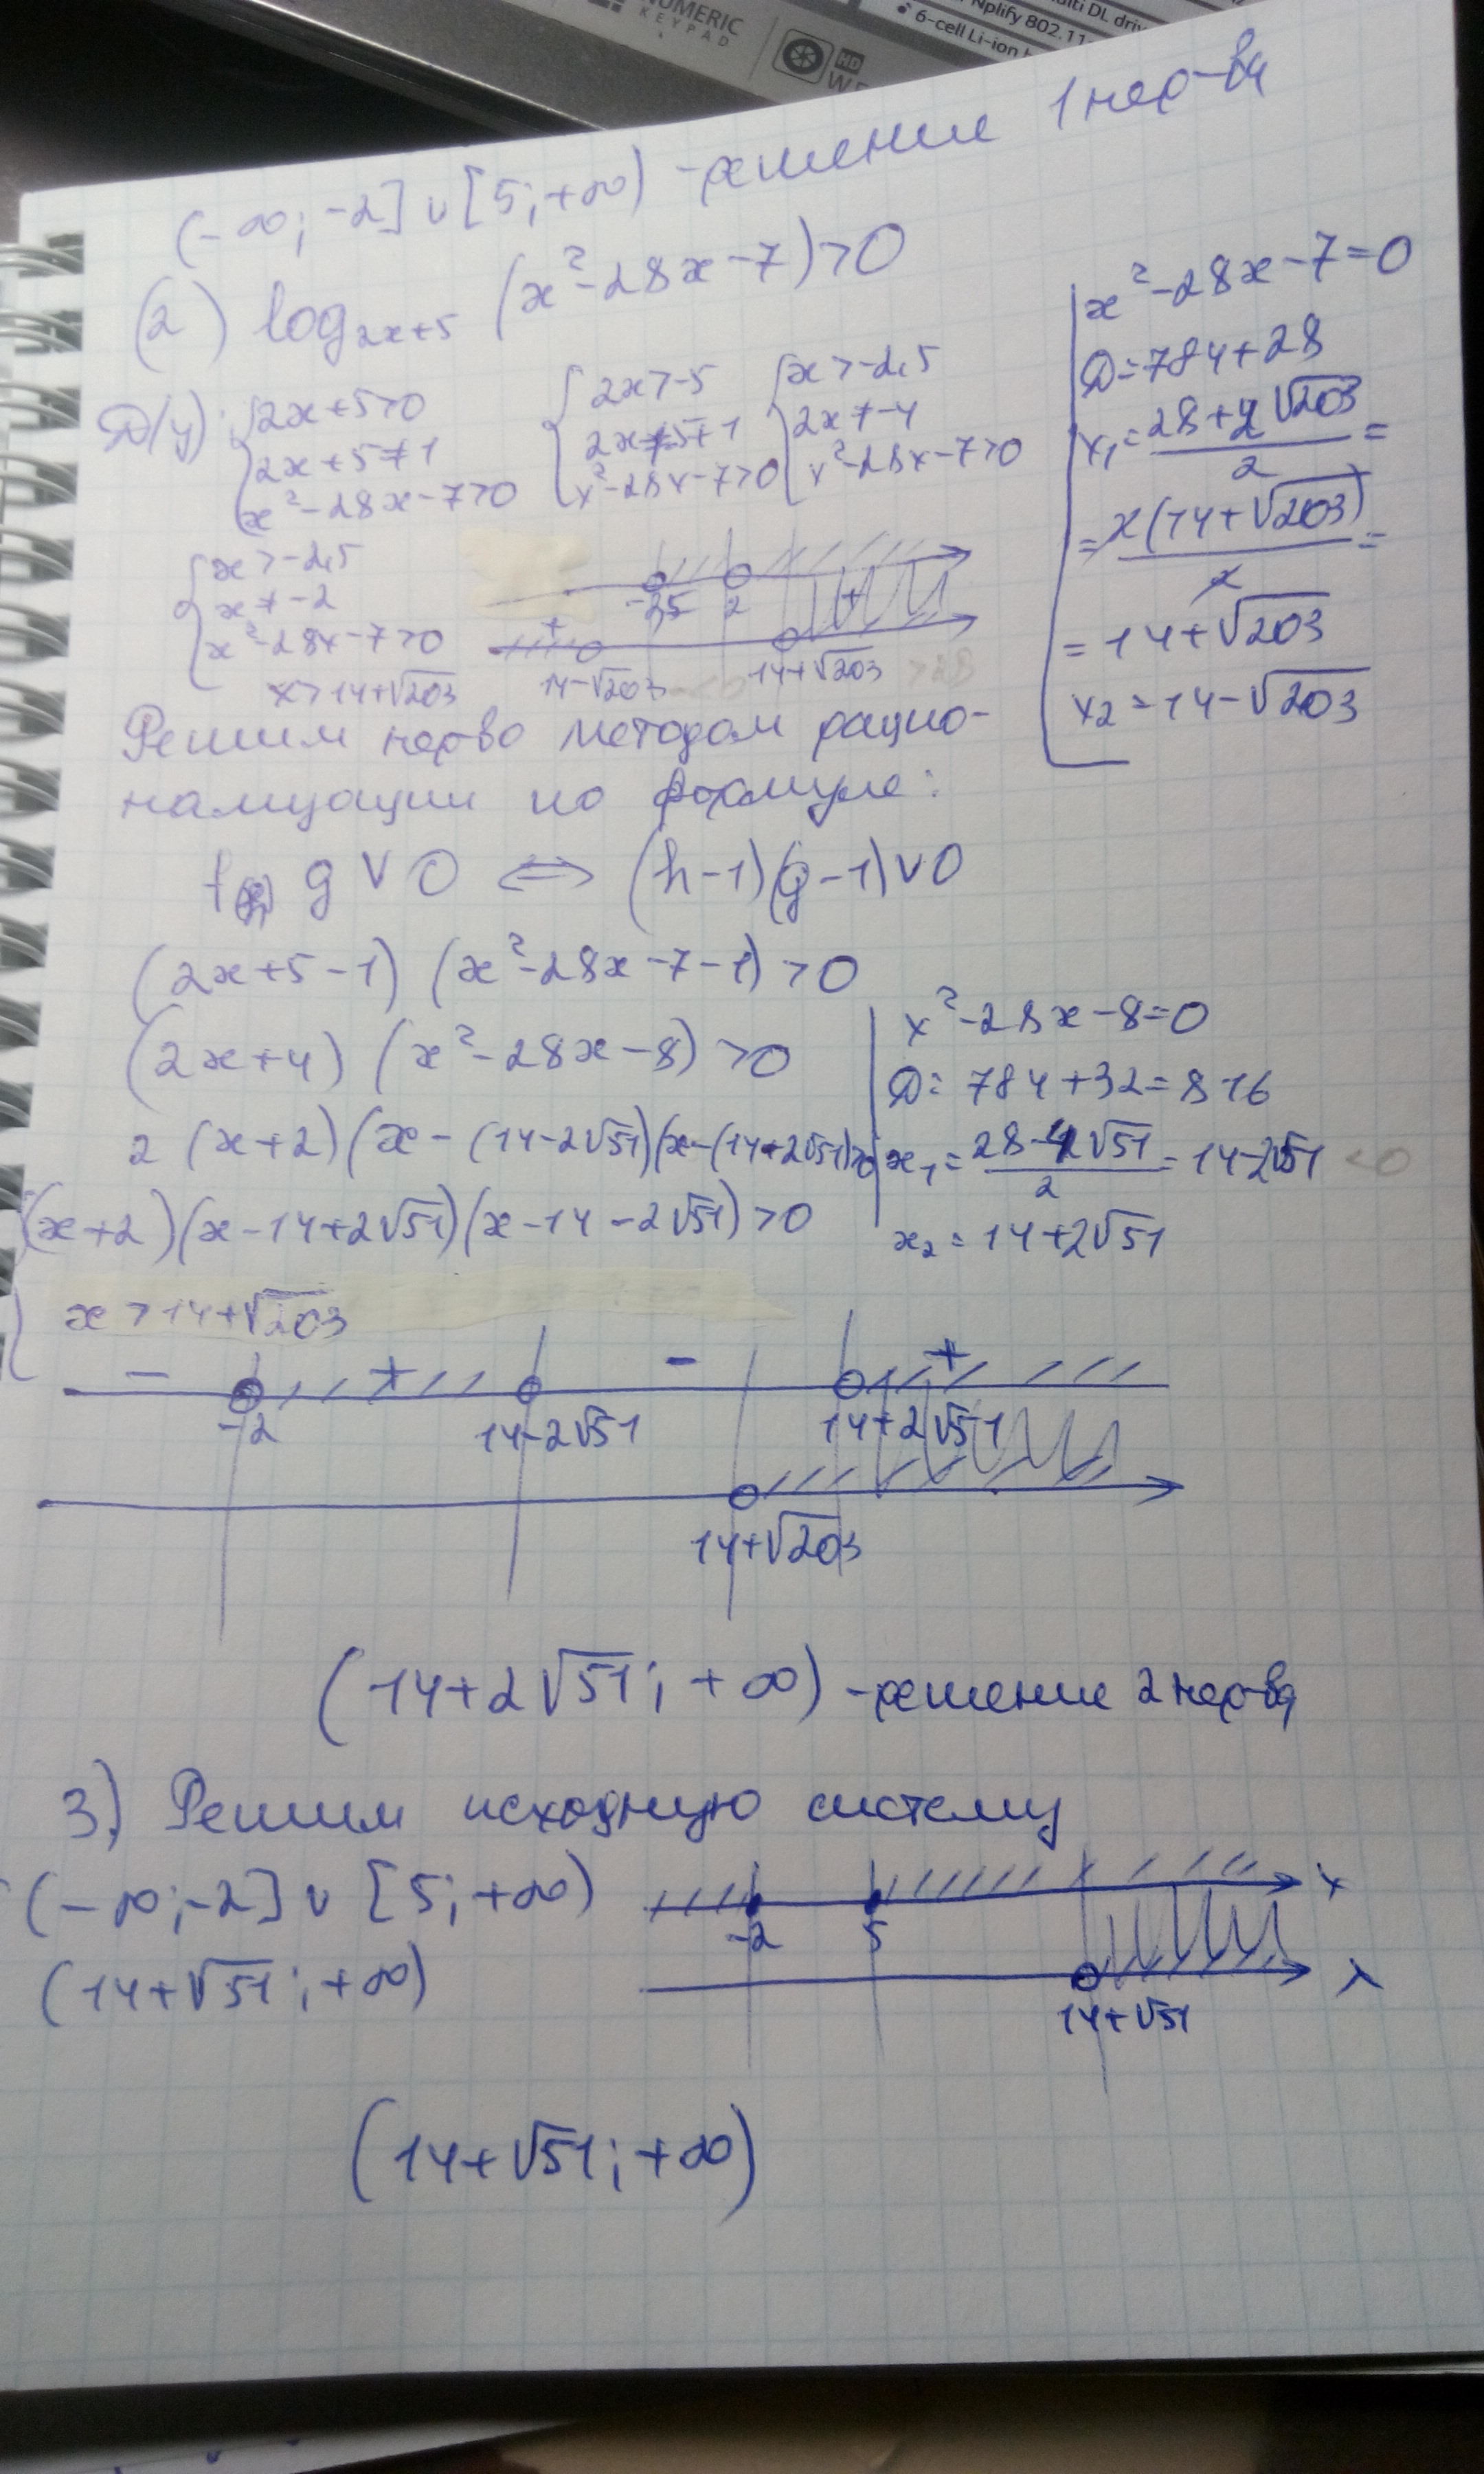 NUMERIC
KEYPAD
HD
Nplify 802.11
6-cell Li-ion
(-∞; -2] ∪ [5; +∞) - решение 1 нер-ва
(2) log₂ₓ₊₅ (x²-28x-7)>0
Д(у): {2x+5>0 {2x>-5 {x>-2,5
2x+5≠1 2x≠-5+1 2x≠-4
x²-28x-7>0 x²-28x-7>0 x²-28x-7>0
{x>-2,5
x≠-2
x²-28x-7>0
x>14+√203
-2,5 2
+ +
14-√203 14+√203
x²-28x-7=0
Д=784+28
x₁=(28+2√203)/2=
=2(14+√203)/2=
=14+√203
x₂=14-√203
Решим нер-во методом рацио-
нализации по формуле:
g ∨ 0 ⇔ (h-1)(g-1)∨0
(2x+5-1) (x²-28x-7-1)>0
(2x+4) (x²-28x-8)>0
2 (x+2)(x-(14-2√51)(x-(14+2√51)>0
(x+2)(x-14+2√51)(x-14-2√51)>0
x²-28x-8=0
Д=784+32=816
x₁=(28-4√51)/2=14-2√51 <0
x₂=14+2√51
x>14+√203
- + - +
-2 14-2√51 14+2√51
14+√203
(14+2√51; +∞) - решение 2 нер-ва
3) Решим исходную систему
(-∞;-2] ∪ [5; +∞)
-2 5 x
(14+√51; +∞)
14+√51 x
(14+√51; +∞)